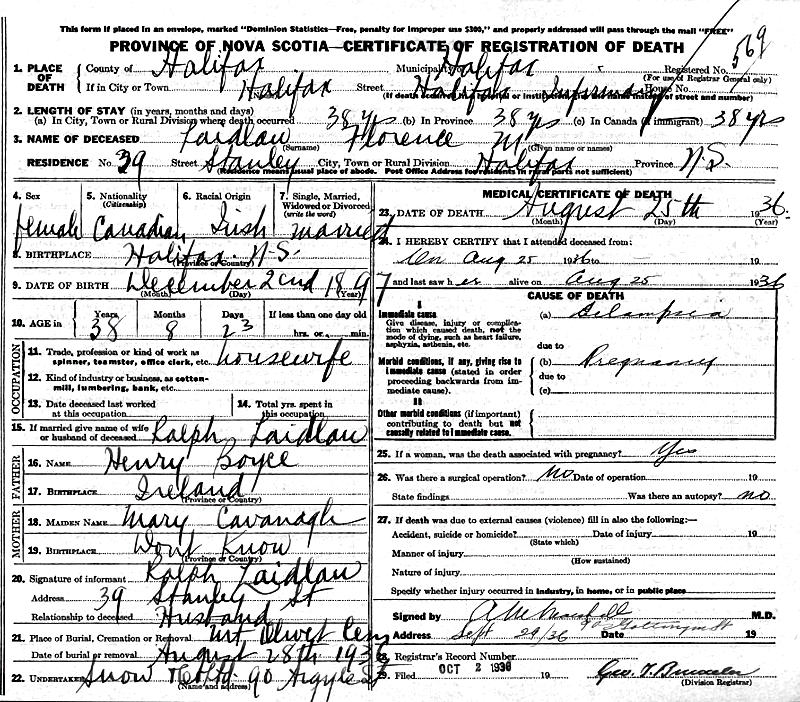 This form if placed in an envelope, marked "Dominion Statistics—Free, penalty for improper use $300," and properly addressed will pass through the mail "FREE"
PROVINCE OF NOVA SCOTIA—CERTIFICATE OF REGISTRATION OF DEATH
569
1. PLACE OF DEATH County of Halifax Municipality of Halifax Registered No.
(For use of Registrar General only)
If in City or Town Halifax Street Halifax Infirmary House No.
(If death occurred in hospital or institution give the name instead of street and number)
2. LENGTH OF STAY (in years, months and days)
(a) In City, Town or Rural Division where death occurred 38 yrs (b) In Province 38 yrs (c) In Canada (if immigrant) 38 yrs
3. NAME OF DECEASED Laidlaw Florence M
(Surname) (Given name or names)
RESIDENCE No. 39 Street Stanley City, Town or Rural Division Halifax Province N.S.
(Residence means usual place of abode. Post Office Address for residents in rural parts not sufficient)
4. Sex 5. Nationality (Citizenship) 6. Racial Origin 7. Single, Married, Widowed or Divorced (write the word)
female Canadian Irish married
8. BIRTHPLACE Halifax N.S.
(Province or Country)
9. DATE OF BIRTH December 2cnd 18 9
(Month) (Day) (Year)
10. AGE in Years Months Days If less than one day old
38 8 23 hrs. or min.
OCCUPATION
11. Trade, profession or kind of work as spinner, teamster, office clerk, etc. housewife
12. Kind of industry or business, as cotten-mill, lumbering, bank, etc.
13. Date deceased last worked at this occupation 14. Total yrs. spent in this occupation
15. If married give name of wife or husband of deceased Ralph Laidlaw
FATHER
16. NAME Henry Boyce
17. BIRTHPLACE Ireland
(Province or Country)
MOTHER
18. MAIDEN NAME Mary Cavanagh
19. BIRTHPLACE Wont Know
(Province or Country)
20. Signature of informant Ralph Laidlaw
Address 39 Stanley St
Relationship to deceased Husband
21. Place of Burial, Cremation or Removal Mt Olivet Cem
Date of burial or removal August 28th 1936
22. UNDERTAKER Snow 90 Argyle St
(Name and address)
MEDICAL CERTIFICATE OF DEATH
23. DATE OF DEATH August 25th 1936.
(Month) (Day) (Year)
24. I HEREBY CERTIFY that I attended deceased from:
On Aug 25 1936 to — 19
and last saw her alive on Aug 25 1936
CAUSE OF DEATH
I
Immediate cause
Give disease, injury or complication which caused death, not the mode of dying, such as heart failure, asphyxia, asthenia, etc.
(a) Eclampsia
due to
Morbid conditions, if any, giving rise to immediate cause (stated in order proceeding backwards from immediate cause).
(b) Pregnancy
due to
(c)
II
Other morbid conditions (if important) contributing to death but not causally related to immediate cause.
25. If a woman, was the death associated with pregnancy? Yes
26. Was there a surgical operation? No Date of operation 19
State findings Was there an autopsy? no
27. If death was due to external causes (violence) fill in also the following:—
Accident, suicide or homicide? Date of injury 19
(State which)
Manner of injury
(How sustained)
Nature of injury
Specify whether injury occurred in industry, in home, or in public place
Signed by M.D.
Address Sept 29/36 Date 19
28. Registrar's Record Number
29. Filed OCT 2 1936 19
(Division Registrar)